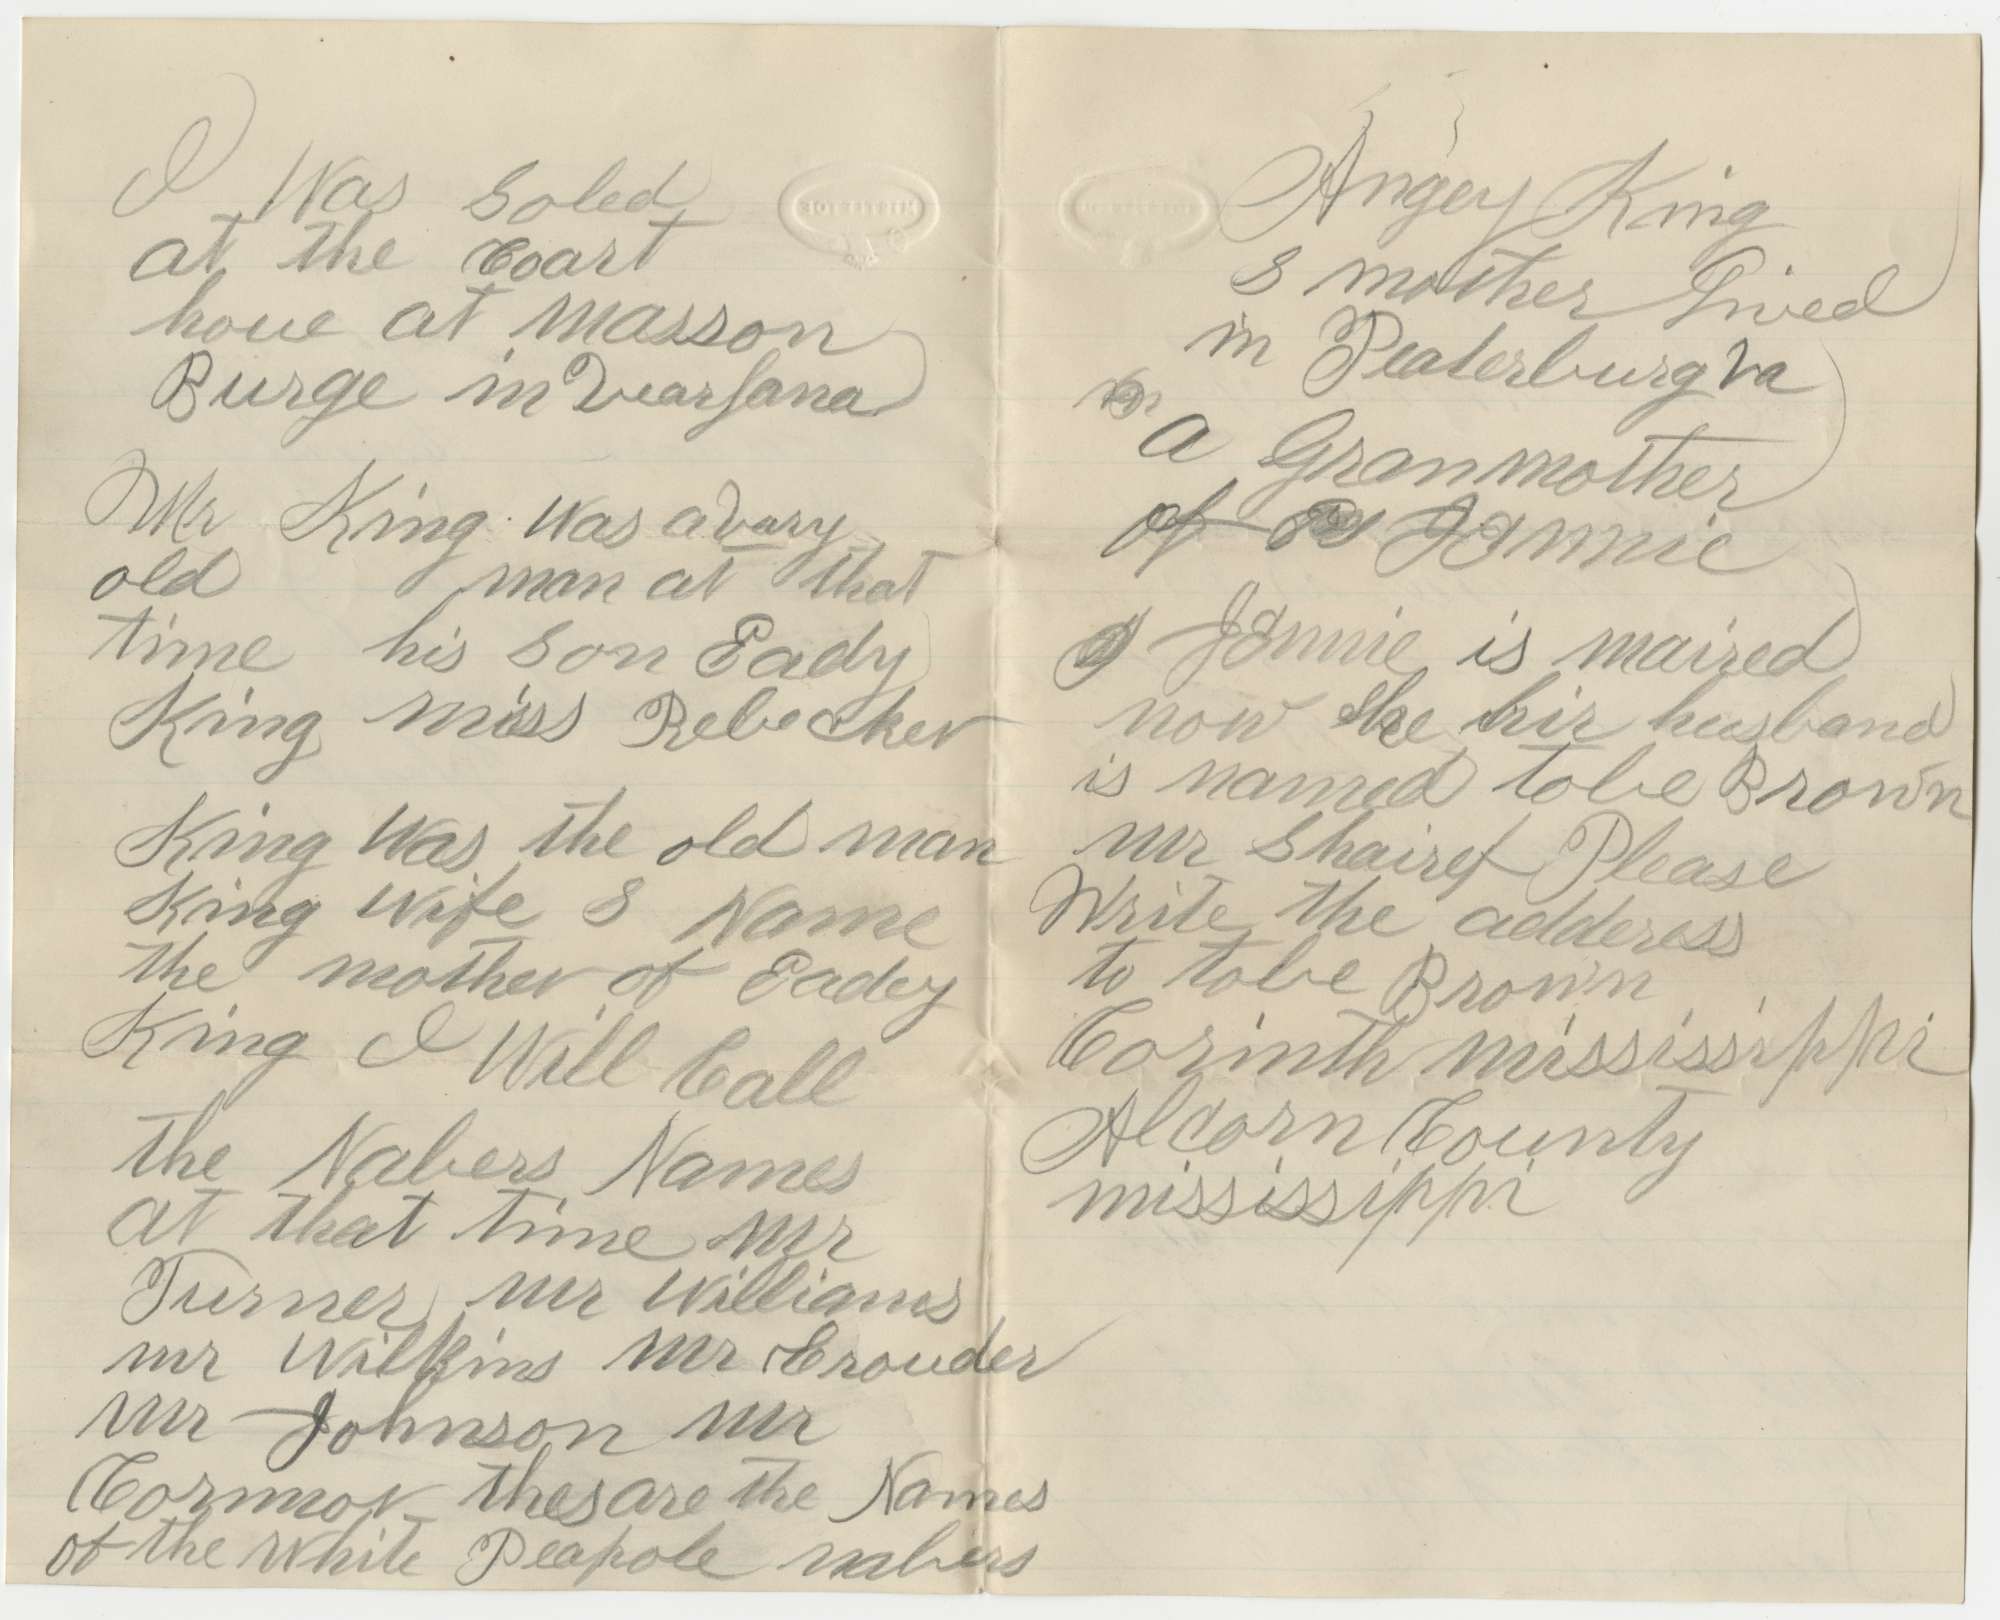 I Was Soled
at the Coart
houe at masson
Burge in
Mr King Was a vary
old man at that
time his Son Eady
King miss Rebecker
King Was the old man
King Wife S Name
the mother of Eadey
King I Will Call
the Nabers Names
at that time Mr
Turner mr Williams
mr Wilkins Mr Crouder
Mr Johnson Mr
Cormor thes are the Names
of the White Peapole nabers
Angey King
s mother Lived
in Peaterburg va
a Granmother
of Jannie
Jannie is maired
now hir husband
is named tobe Brown
mr Shairef Please
Write the adderess
to tobe Brown
Corinth mississippi
Alcorn County
mississippi